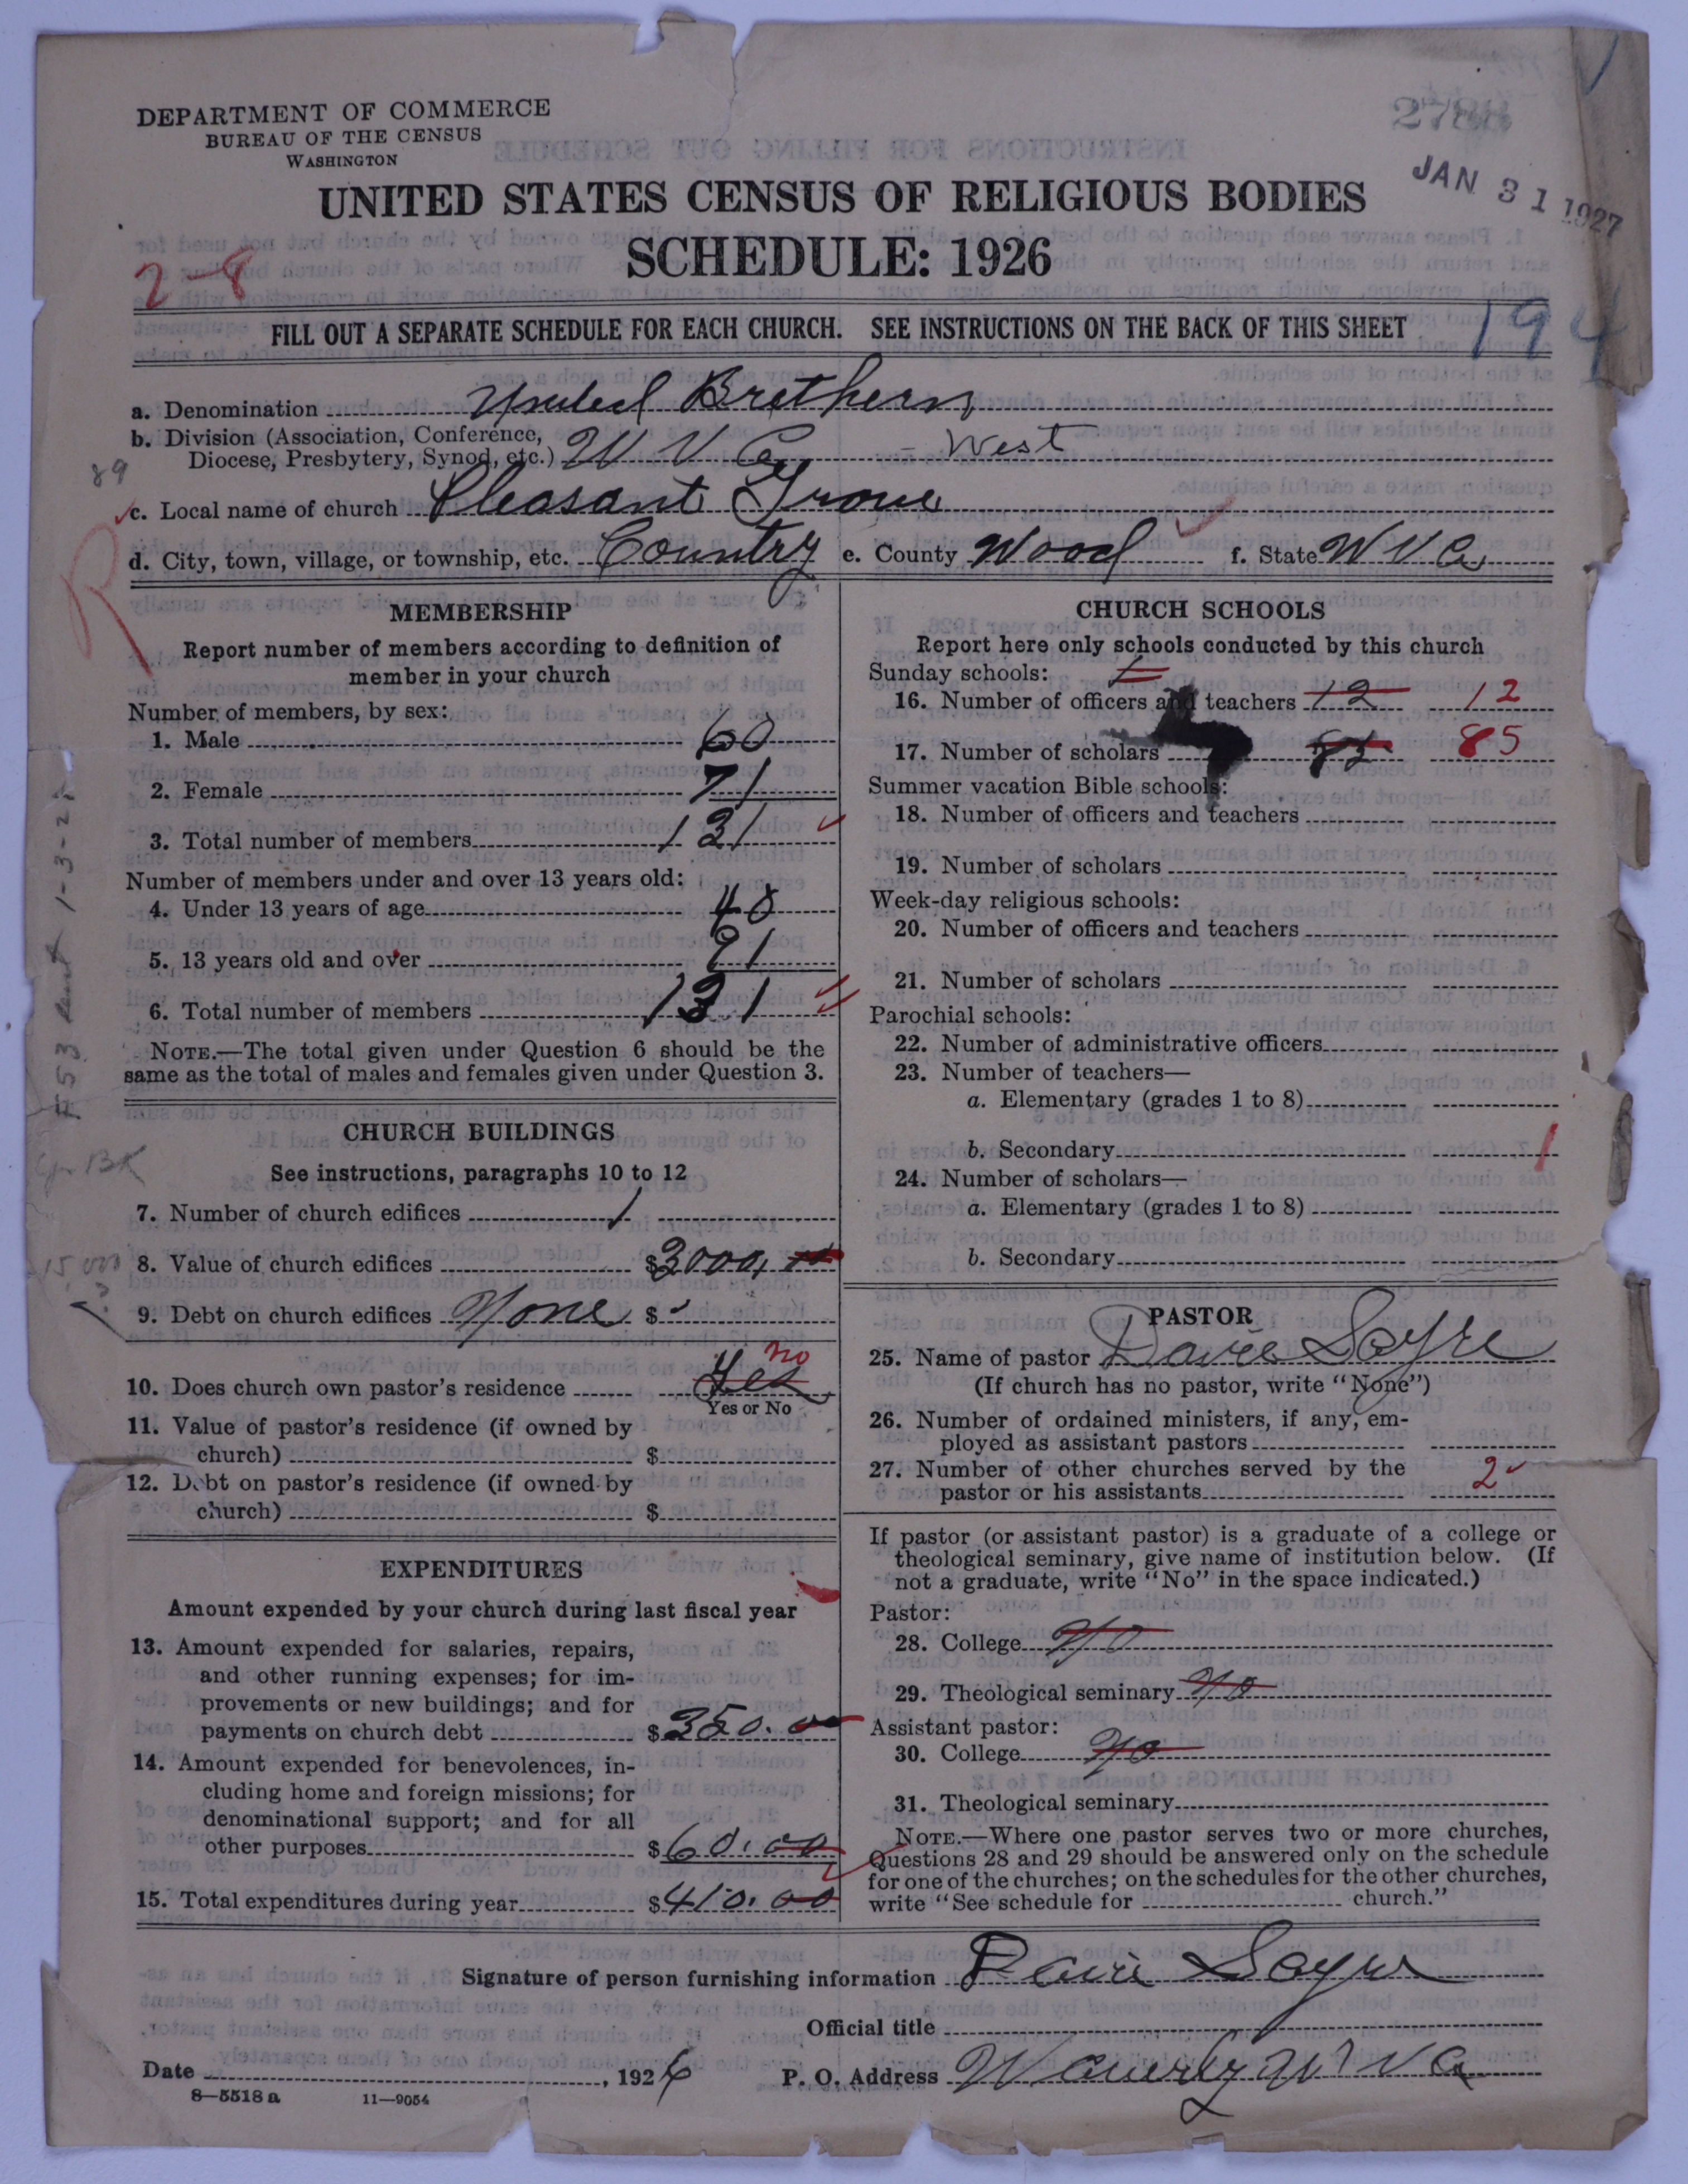 DEPARTMENT OF COMMERCE
BUREAU OF THE CENSUS
WASHINGTON
JAN 31 1927
UNITED STATES CENSUS OF RELIGIOUS BODIES
SCHEDULE: 1926
2-8
FILL OUT A SEPARATE SCHEDULE FOR EACH CHURCH. SEE INSTRUCTIONS ON THE BACK OF THIS SHEET
194
a. Denomination United Brethern
b. Division (Association, Conference,
Diocese, Presbytery, Synod, etc.) W Va - West
89
c. Local name of church Pleasant Grove
d. City, town, village, or township, etc. Country e. County Wood f. State W Va
MEMBERSHIP
Report number of members according to definition of
member in your church
Number of members, by sex:
1. Male 60
2. Female 71
3. Total number of members 131
Number of members under and over 13 years old:
4. Under 13 years of age 40
5. 13 years old and over 91
6. Total number of members 131
NOTE.—The total given under Question 6 should be the
same as the total of males and females given under Question 3.
CHURCH BUILDINGS
See instructions, paragraphs 10 to 12
7. Number of church edifices 1
8. Value of church edifices $3000,00
9. Debt on church edifices None $
10. Does church own pastor's residence Yes no
Yes or No
11. Value of pastor's residence (if owned by
church) $
12. Debt on pastor's residence (if owned by
church) $
EXPENDITURES
Amount expended by your church during last fiscal year
13. Amount expended for salaries, repairs,
and other running expenses; for im-
provements or new buildings; and for
payments on church debt $350.00
14. Amount expended for benevolences, in-
cluding home and foreign missions; for
denominational support; and for all
other purposes $60.00
15. Total expenditures during year $410.00
CHURCH SCHOOLS
Report here only schools conducted by this church
Sunday schools:
16. Number of officers and teachers 12 12
17. Number of scholars 85 85
Summer vacation Bible schools:
18. Number of officers and teachers
19. Number of scholars
Week-day religious schools:
20. Number of officers and teachers
21. Number of scholars
Parochial schools:
22. Number of administrative officers
23. Number of teachers—
a. Elementary (grades 1 to 8)
b. Secondary
24. Number of scholars—
a. Elementary (grades 1 to 8)
b. Secondary
PASTOR
25. Name of pastor Davie Sayre
(If church has no pastor, write "None")
26. Number of ordained ministers, if any, em-
ployed as assistant pastors
27. Number of other churches served by the
pastor or his assistants 2
If pastor (or assistant pastor) is a graduate of a college or
theological seminary, give name of institution below. (If
not a graduate, write "No" in the space indicated.)
Pastor:
28. College No
29. Theological seminary No
Assistant pastor:
30. College No
31. Theological seminary
NOTE.—Where one pastor serves two or more churches,
Questions 28 and 29 should be answered only on the schedule
for one of the churches; on the schedules for the other churches,
write "See schedule for church."
Signature of person furnishing information Davie Sayre
Official title
Date , 1926 P. O. Address Waverly W Va
8—5518 a 11—9054